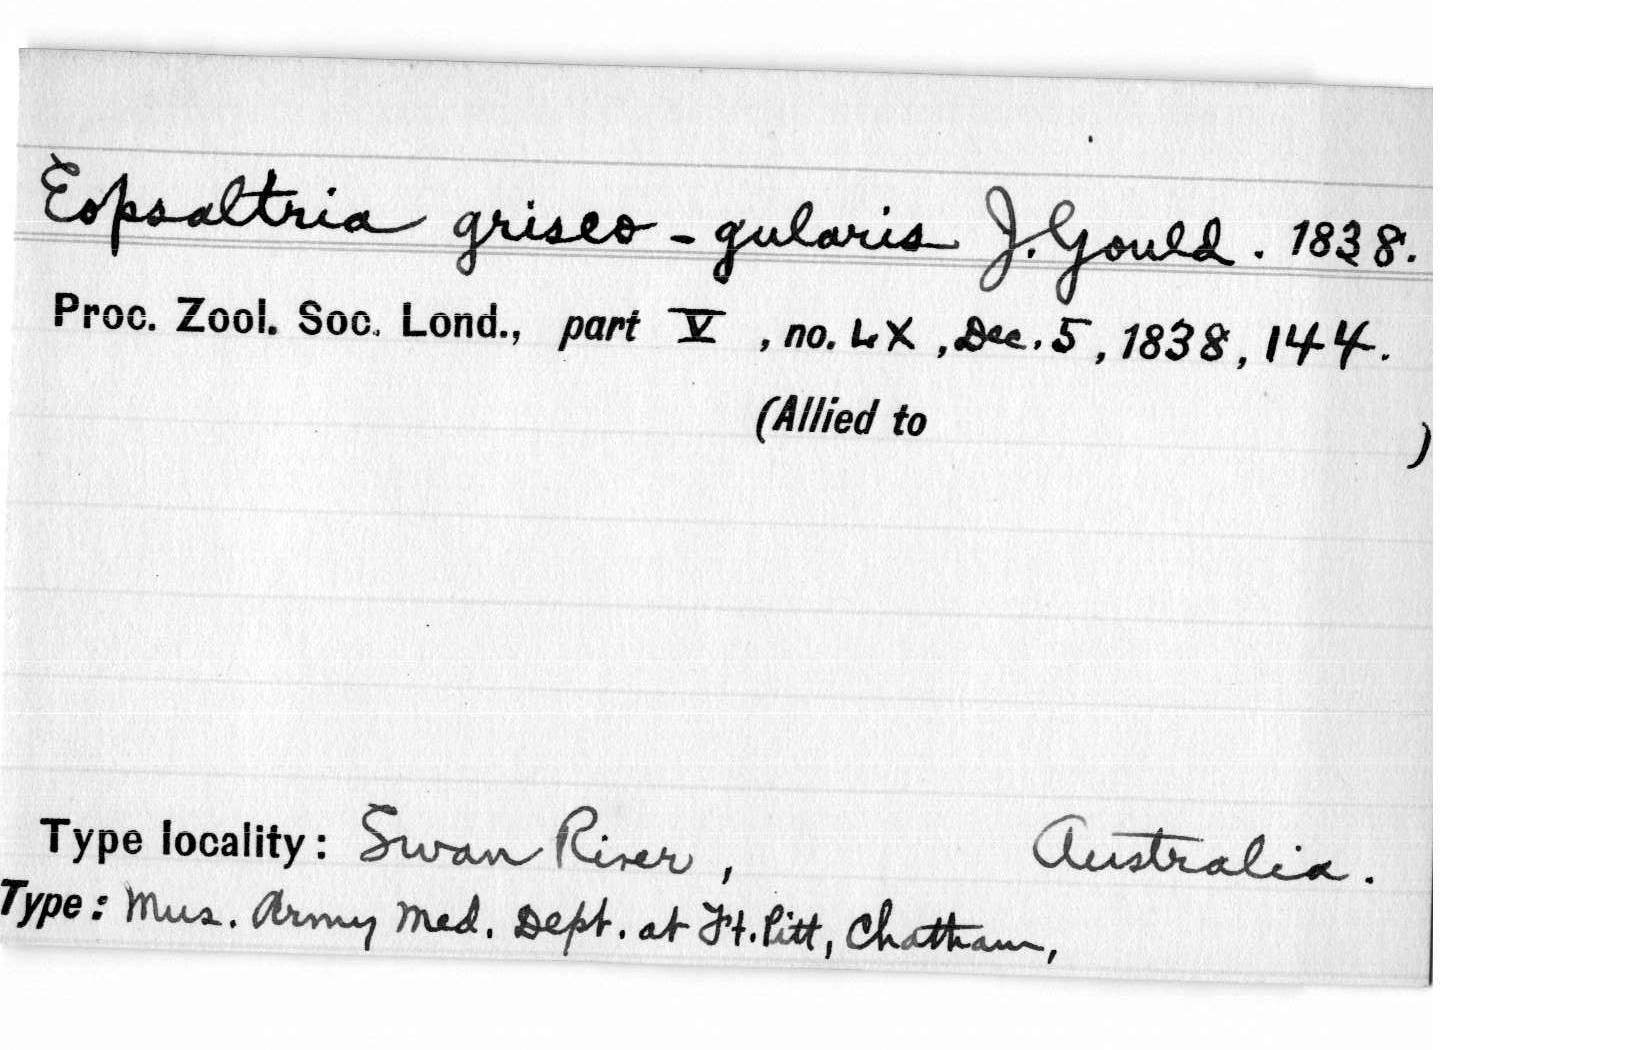 Eopsaltria griseo-gularis J. Gould. 1838.
Proc. Zool. Soc. Lond., part V, no. LX, Dec. 5, 1838, 144.
(Allied to )
Type locality: Swan River, Australia.
Type: Mus. Army Med. Dept. at Ft. Pitt, Chatham,